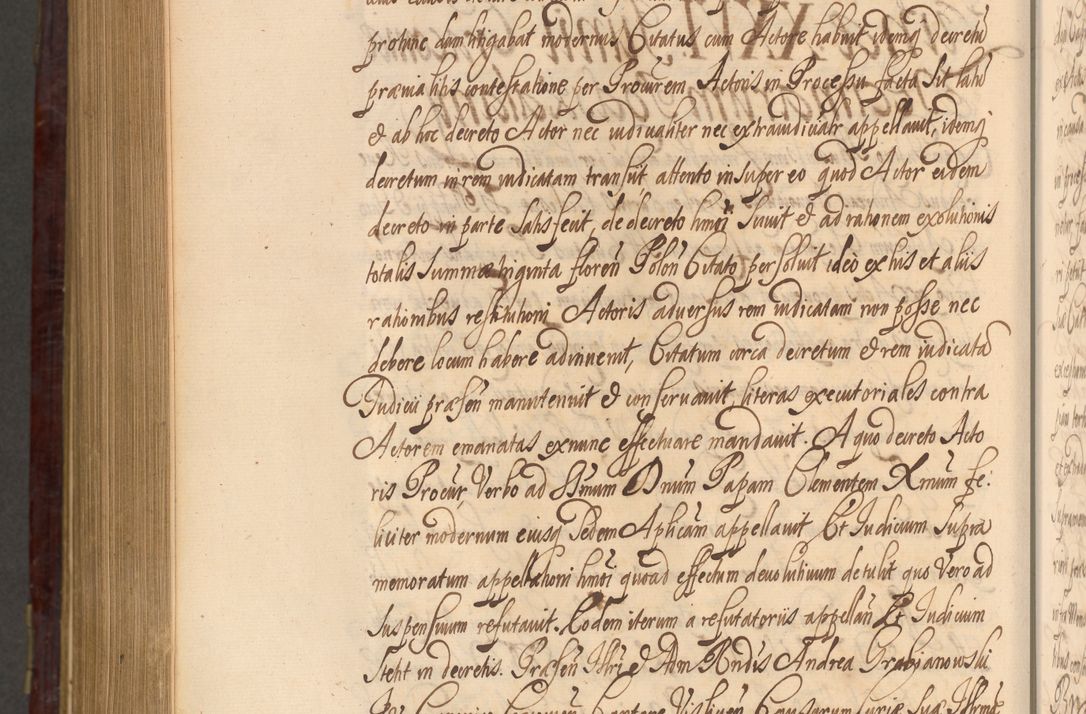 protunc dum litigabat modernus Citatus cum Actore habuit idemq decretũ
prævia litis contestatione per Procurem Actoris in Processu facta sit latũ
& ab hoc decreto Actor nec iudicialiter nec extraiudicialr appellavit, idemq
decretum in rem iudicatam transiit attento insuper eo quod Actor eidem
decreto in parte satisfecit, de decreto hmoi scivit & ad rationem exolutionis
totalis summæ triginta floren Polon Citato persolvit ideo ex his et aliis
rationibus restitutioni Actoris adversus rem iudicatam non posse nec
debere locum habere adinvenit, Citatum circa decretum & rem iudicatã
Iudicii præsen manutenuit & conservavit, literas executoriales contra
Actorem emanatas exnunc effectuare mandavit. A quo decreto Acto
ris Procur, Verbo ad SSmum Dnum Papam Clementem Xmum fe:
liciter modernum eiusq Sedem Aplicam appellavit Et Iudicium supra
memoratum appellationi hmoi quoad effectum devolutivum detulit quo Vero ad
suspensivum refutavit. Eodem iterum a refutatoriis appellan Et Iudicium
stetit in decretis. Præsen Illri & Adm Rndis Andrea Grabianowski